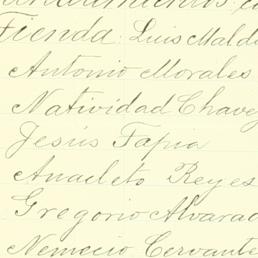 Tienda: Luis Mald
Antonio Morales
Natividad Chavez
Jesús Tapia
Anacleto Reyes
Gregorio Alvarad
Nemecio Cervante